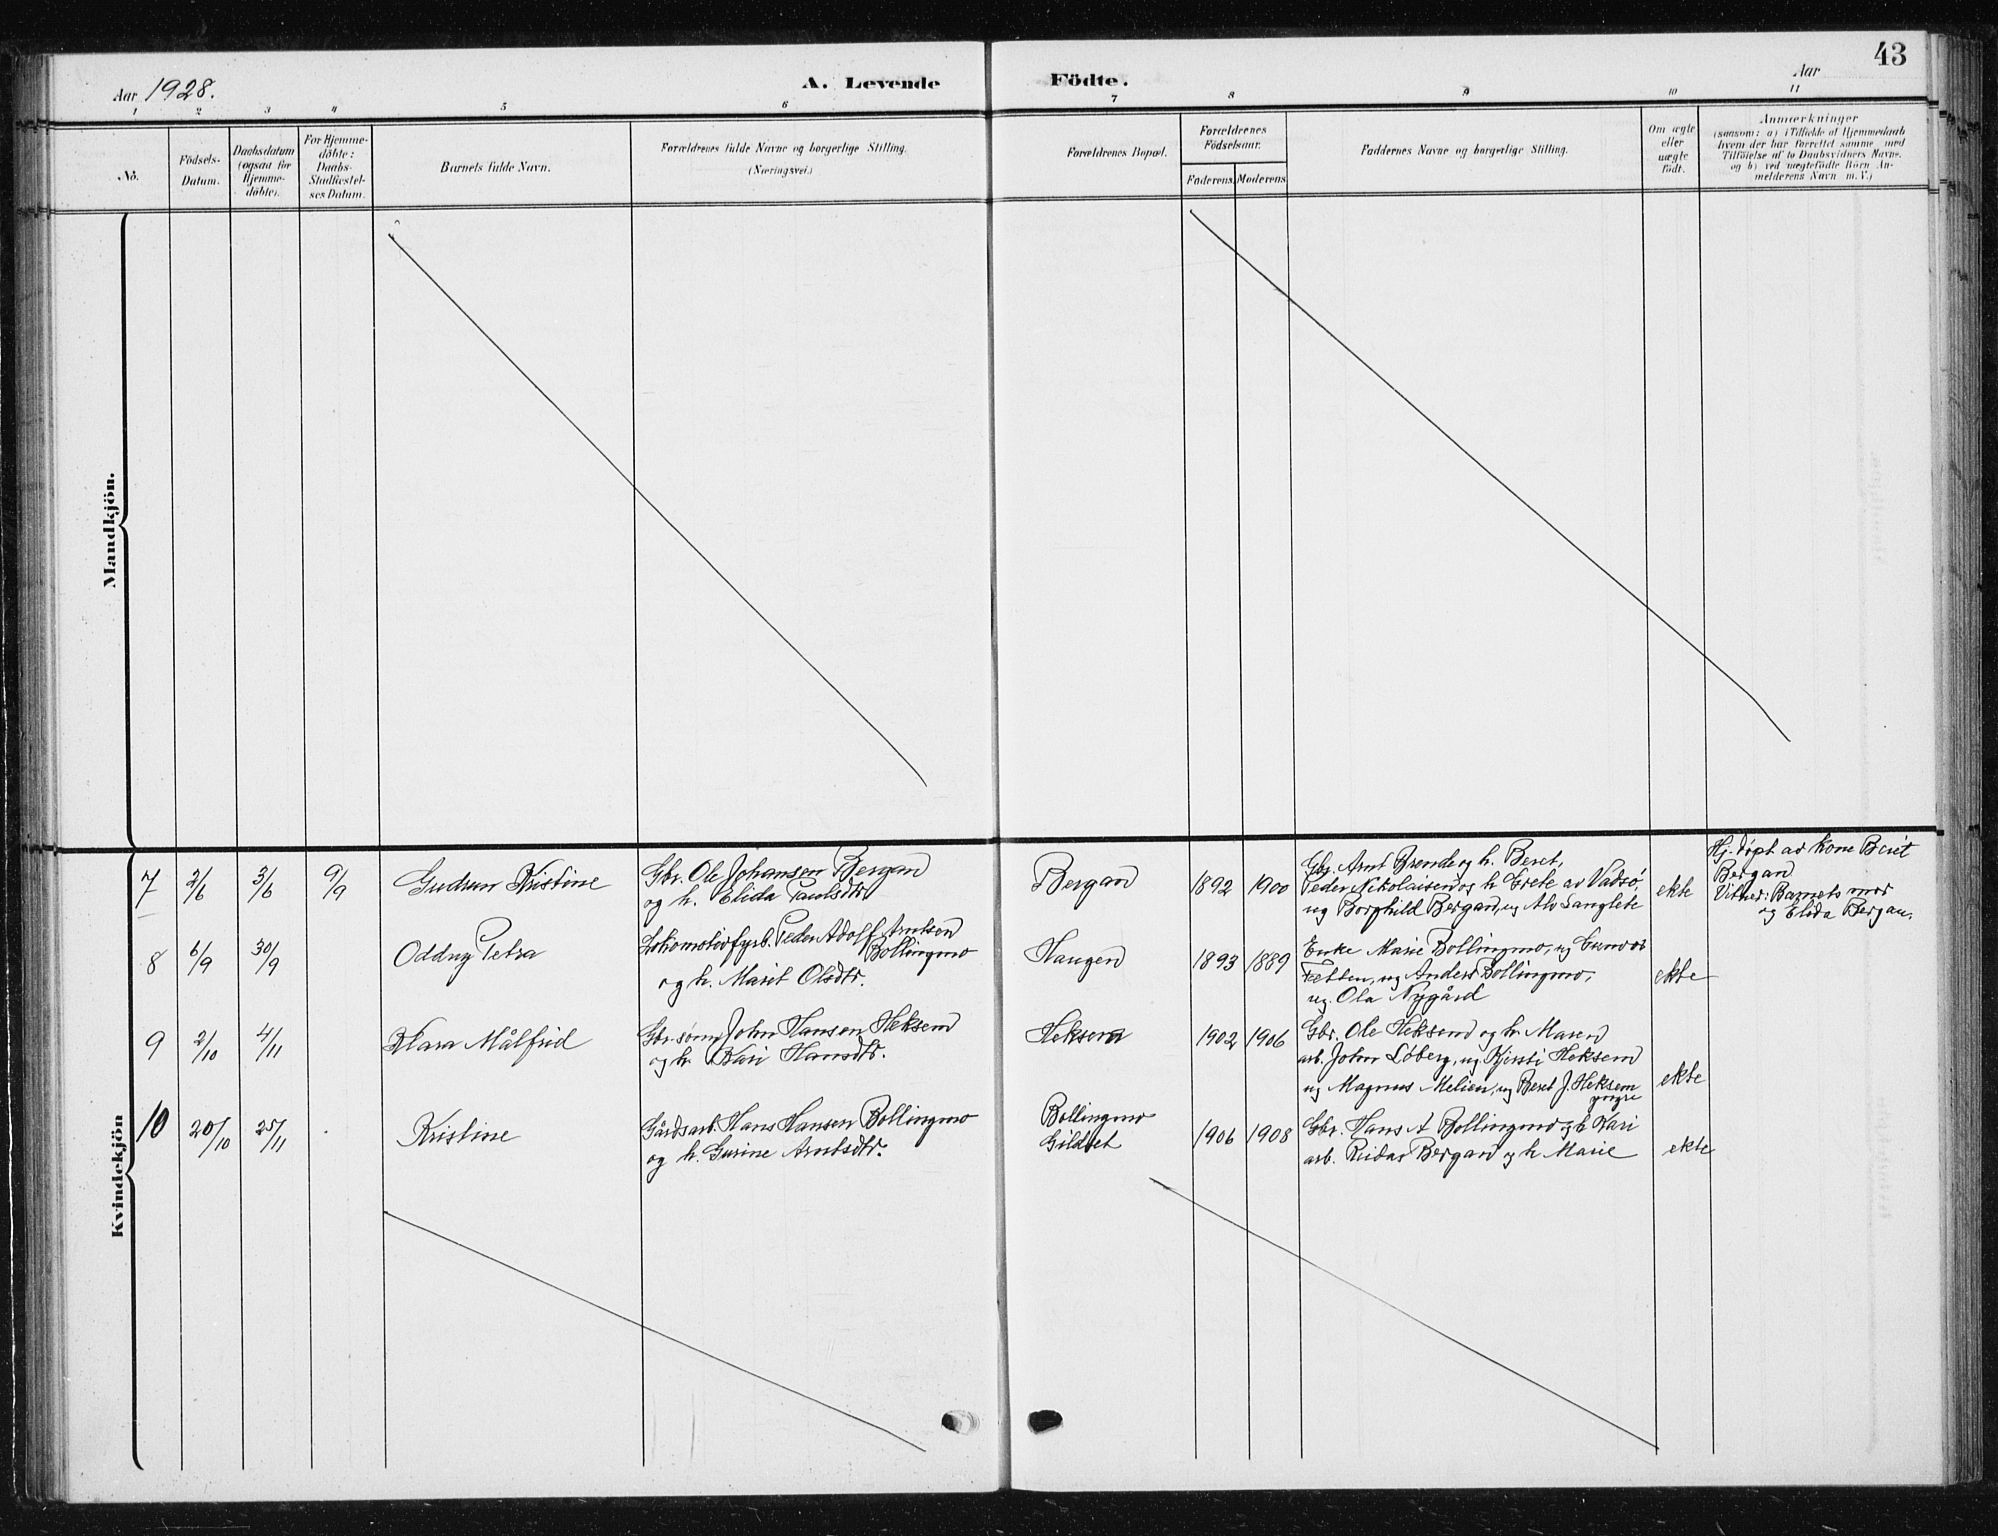 43
Aar 1928.
A. Levende Födte.
Aar
1 2 3 4 5 6 7 8 9 10 11
No.
Födsels-
Datum.
Daabsdatum
(ogsaa for
Hjemme-
döbte).
For Hjemme-
döbte:
Daabs-
Stadfæstel-
ses Datum.
Barnets fulde Navn.
Forældrenes fulde Navne og borgerlige Stilling.
(Næringsvei.)
Forældrenes Bopæl.
Forældrenes
Födselsaar.
Faderens.
Moderens.
Faddernes Navne og borgerlige Stilling.
Om ægte
eller
uægte
födt.
Anmærkninger
(saasom: a) i Tilfælde af Hjemmedaab
hvem der har forrettet samme, med
Tilföielse af to Daabsvidners Navne,
og b) ved uægtefödte Börn An-
melderens Navn m. V.)
Mandkjön.
Kvindekjön
7 2/6 3/6 9/9
Gudrun Kristine
Gbr. Ole Johansen Bergan
og h. Elida Paulsdtr.
Bergan
1892 1900
Gbr. Arnt Brende og h. Beret,
Peder Nikolaisen og h Grete av Vadsö,
ug Borghild Bergan, ug Alv Langlete
ekte
Hj. döpt av kone Beret
Bergan
Vitner: Barnets mor
og Elida Bergan.
8 6/9 30/9
Oddny Petra
Lokomotivfyrb. Peder Adolf Arntsen
Bollingmo
og h. Marit Olsdtr.
Haugen
1893 1889
Enke Marie Bollingmo, ug Gunvor
Tetten, ug Anders Bollingmo,
ug. Ola Nygård
ekte
9 2/10 4/11
Klara Målfrid
Gbr.sønn John Hansen Heksem
og h. Kari Hansdtr.
Heksem
1902 1906
Gbr. Ole Heksem og h. Maren
arb. John Löberg, ug Kjersti Heksem
ug Magnus Melien, ug Beret J. Heksem
yngre
ekte
10 20/10 25/11
Kristine
Gårdsarb. Hans Hansen Bollingmo
og h. Gurine Arntsdtr.
Bollingmo
Gildset
1906 1908
Gbr. Hans A Bollingmo og h Kari
arb. Reidar Bergan og h. Marie
ekte